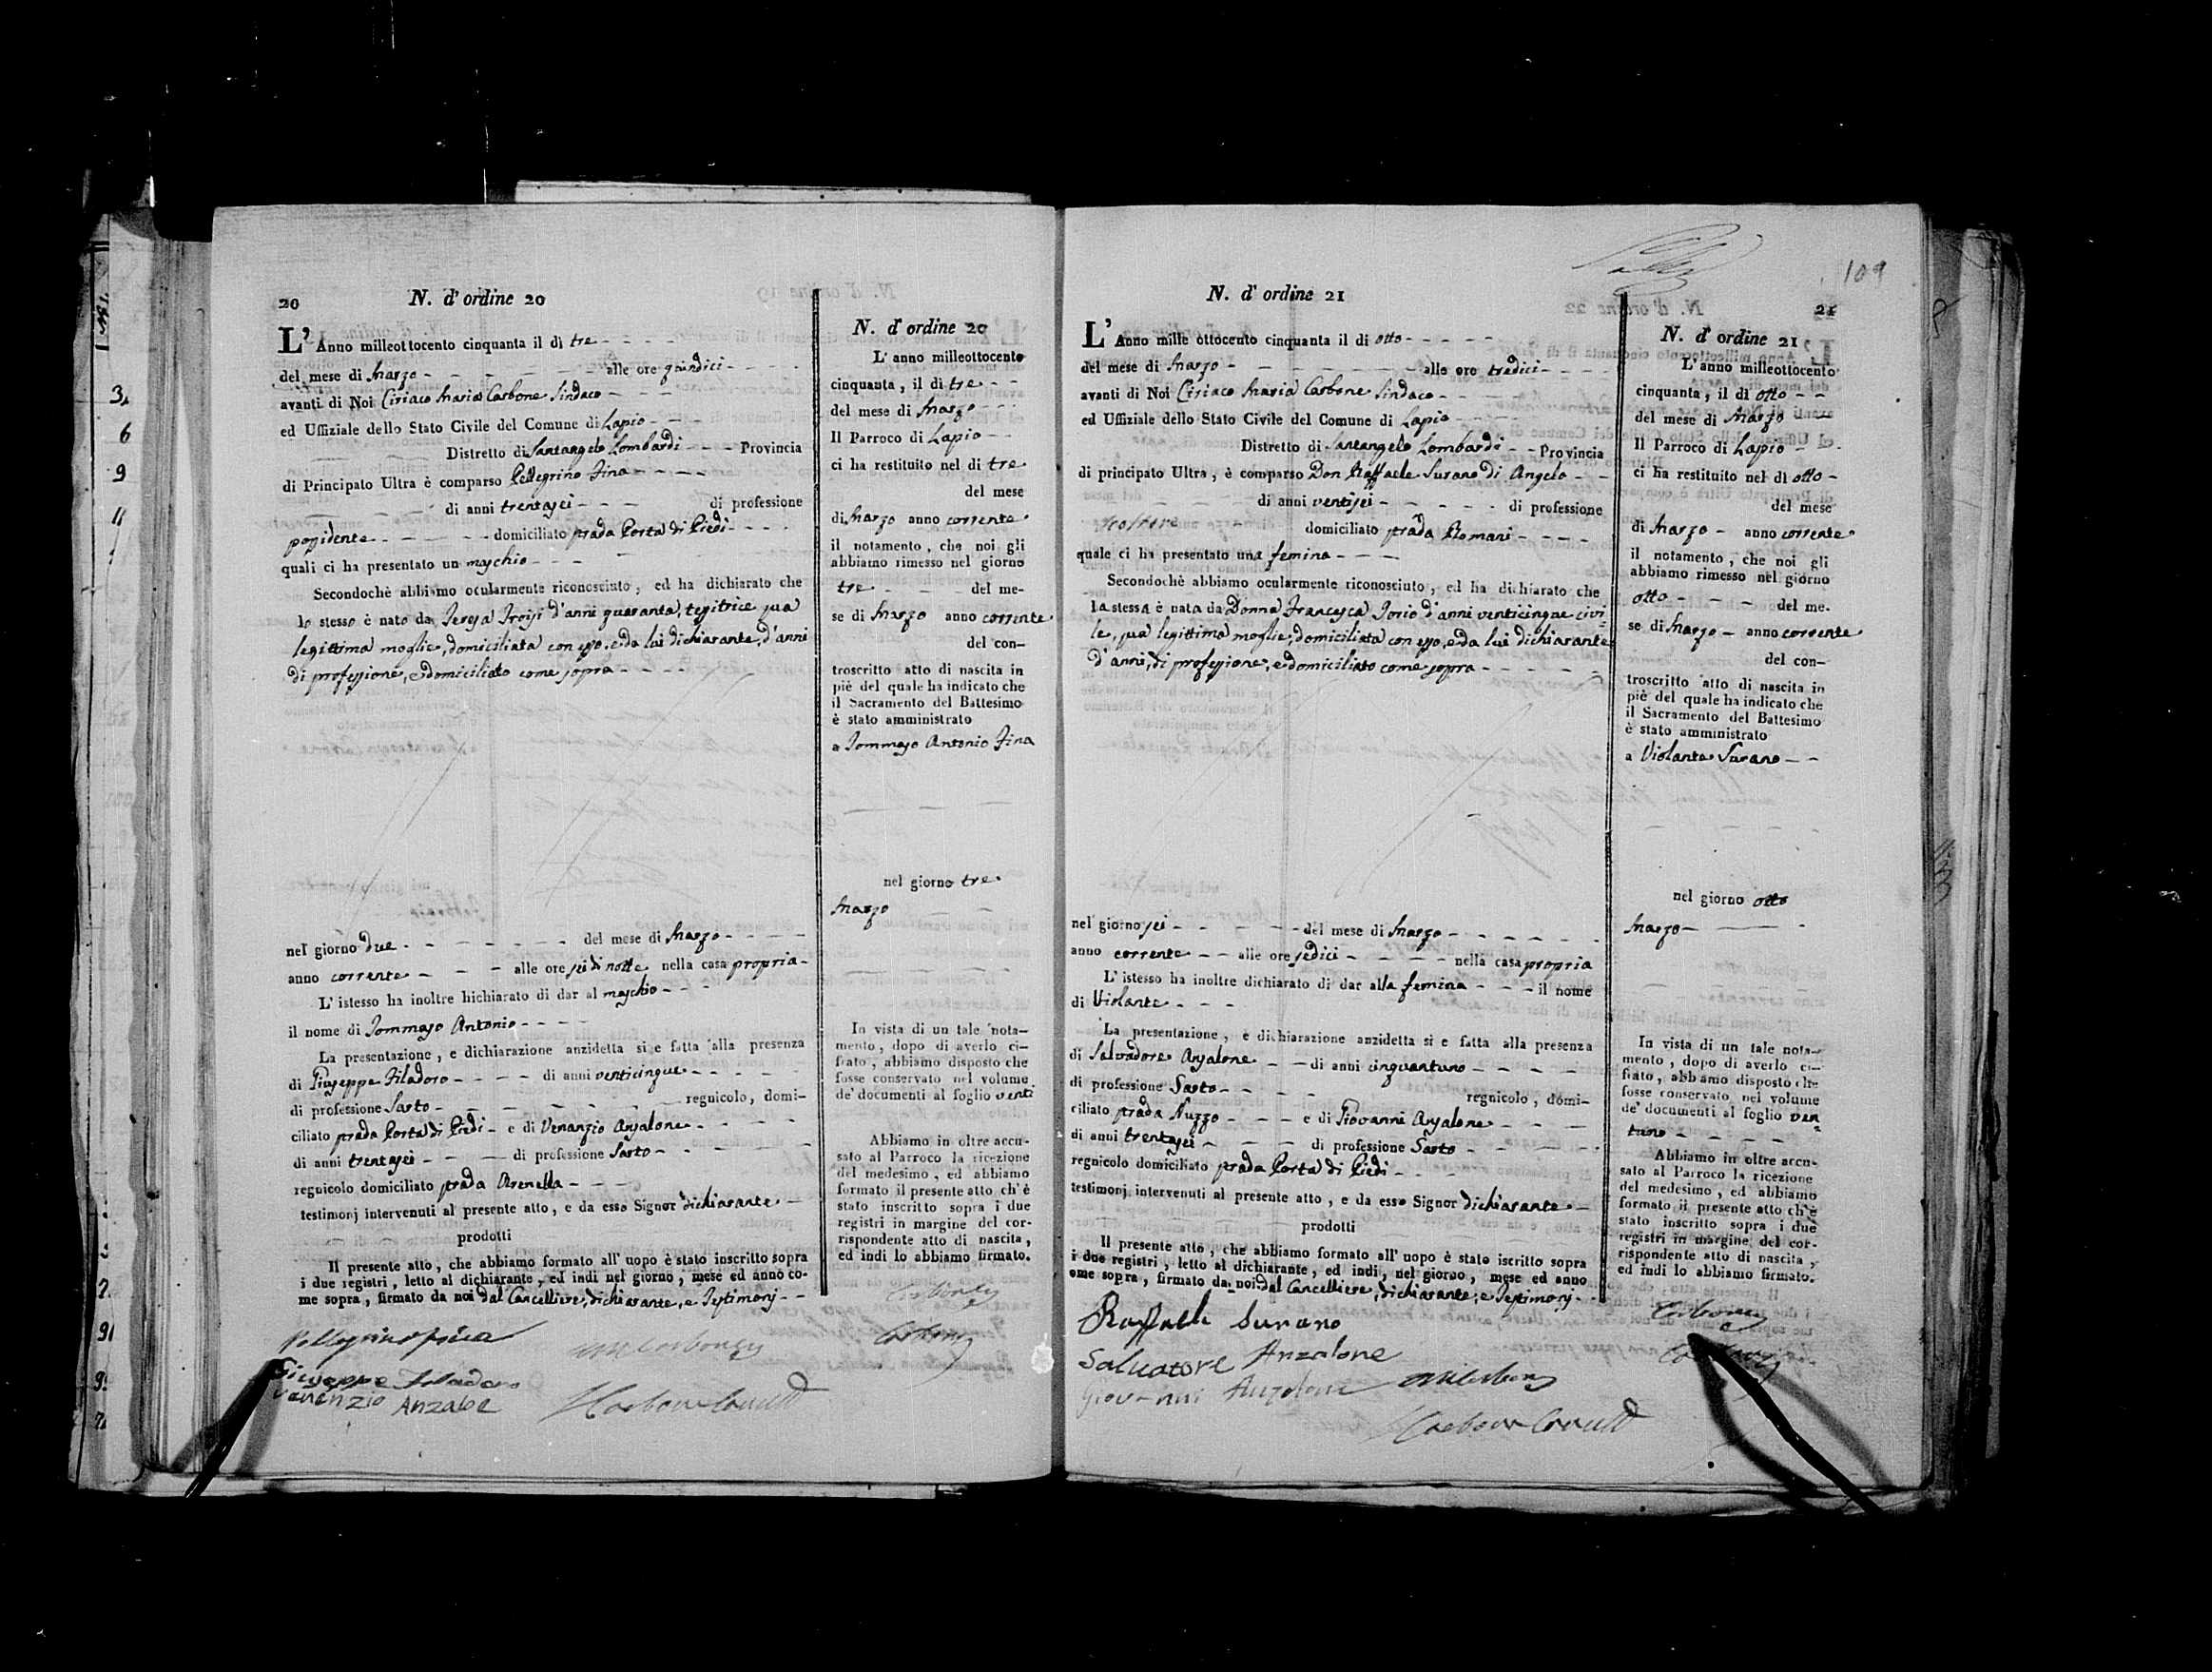 20
N. d' ordine 20
L' Anno milleottocento cinquanta il dì tre
del mese di Marzo alle ore quindici
avanti di Noi Ciriaco Maria Carbone Sindaco
ed Uffiziale dello Stato Civile del Comune di Lapio
Distretto di Santangelo Lombardi Provincia
di Principato Ultra è comparso Pellegrino Fina
di anni trentasei di professione
possidente domiciliato strada Porta di Piedi
quali ci ha presentato un maschio
Secondochè abbiamo ocularmente riconosciuto, ed ha dichiarato che
lo stesso è nato da Teresa Troisi d'anni quaranta, tessitrice sua
legittima moglie, domiciliata con esso, e da lui dichiarante, d'anni
di professione, e domiciliato come sopra
nel giorno due del mese di Marzo
anno corrente alle ore sei di notte nella casa propria
L' istesso ha inoltre hichiarato di dar al maschio
il nome di Tommaso Antonio
La presentazione, e dichiarazione anzidetta si e fatta alla presenza
di Giuseppe Filadoro di anni venticinque
di professione Sarto regnicolo, domi-
ciliato strada Porta di Piedi e di Venanzio Anzalone
di anni trentasei di professione Sarto
regnicolo domiciliato strada Arenella
testimonj intervenuti al presente atto, e da esso Signor dichiarante
prodotti
Il presente atto, che abbiamo formato all' uopo è stato inscritto sopra
i due registri, letto al dichiarante, ed indi nel giorno, mese ed anno co-
me sopra, firmato da noi dal Cancelliere, dichiarante, e Testimonj
Pellegrino Fina
Giuseppe Filadoro
Venenzio Anzaloe
N. d' ordine 20
L' anno milleottocento
cinquanta, il di tre
del mese di Marzo
Il Parroco di Lapio
ci ha restituito nel di tre
del mese
di Marzo anno corrente
il notamento, che noi gli
abbiamo rimesso nel giorno
tre del me-
se di Marzo anno corrente
del con-
troscritto atto di nascita in
piè del quale ha indicato che
il Sacramento del Battesimo
è stato amministrato
a Tommaso Antonio Fina
nel giorno tre
Marzo
In vista di un tale nota-
mento, dopo di averlo ci-
frato, abbiamo disposto che
fosse conservato nel volume
de' documenti al foglio venti
Abbiamo in oltre accu-
sato al Parroco la ricezione
del medesimo, ed abbiamo
formato il presente atto ch' è
stato inscritto sopra i due
registri in margine del cor-
rispondente atto di nascita,
ed indi lo abbiamo firmato.
Carbone
109
N. d' ordine 21
21
L' Anno mille ottocento cinquanta il di otto
del mese di Marzo alle ore tredici
avanti di Noi Ciriaco Maria Carbone Sindaco
ed Uffiziale dello Stato Civile del Comune di Lapio
Distretto di Santangelo Lombardi Provincia
di principato Ultra, è comparso Don Raffaele Surano di Angelo
di anni ventisei di professione
domiciliato strada Romani
quale ci ha presentato una femina
Secondochè abbiamo ocularmente riconosciuto, ed ha dichiarato che
la stessa è nata da Donna Francesca Iorio d'anni venticinque civi-
le, sua legittima moglie, domiciliata con esso, e da lui dichiarante
d'anni, di professione, e domiciliato come sopra
nel giorno sei del mese di Marzo
anno corrente alle ore sedici nella casa propria
L' istesso ha inoltre dichiarato di dar alla femina il nome
di Violante
La presentazione, e dichiarazione anzidetta si e fatta alla presenza
di Salvadore Anzalone di anni cinquantuno
di professione Sarto regnicolo, domi-
ciliato strada Nuzzo e di Giovanni Anzalone
di anni trentasei di professione Sarto
regnicolo domiciliato strada Porta di Piedi
testimonj intervenuti al presente atto, e da esso Signor dichiarante
prodotti
Il presente atto, che abbiamo formato all' uopo è stato iscritto sopra
i due registri, letto al dichiarante, ed indi, nel giorno, mese ed anno
ome sopra, firmato da noi dal Cancelliere, dichiarante, e Testimonj
Raffaele Surano
Salvatore Anzalone
Giovanni Anzalone
N. d' ordine 21
L' anno milleottocento
cinquanta, il dì otto
del mese di Marzo
Il Parroco di Lapio
ci ha restituito nel dì otto
del mese
di Marzo anno corrente
il notamento, che noi gli
abbiamo rimesso nel giorno
otto del me-
se di Marzo anno corrente
del con-
troscritto atto di nascita in
piè del quale ha indicato che
il Sacramento del Battesimo
è stato amministrato
a Violante Surano
nel giorno otto
Marzo
In vista di un tale nota-
mento, dopo di averlo ci-
frato, abbiamo disposto che
fosse conservato nel volume
de' documenti al foglio ven-
tuno
Abbiamo in oltre accu-
sato al Parroco la ricezione
del medesimo, ed abbiamo
formato il presente atto ch'è
stato inscritto sopra i due
registri in margine del cor-
rispondente atto di nascita,
ed indi lo abbiamo firmato.
Carbone